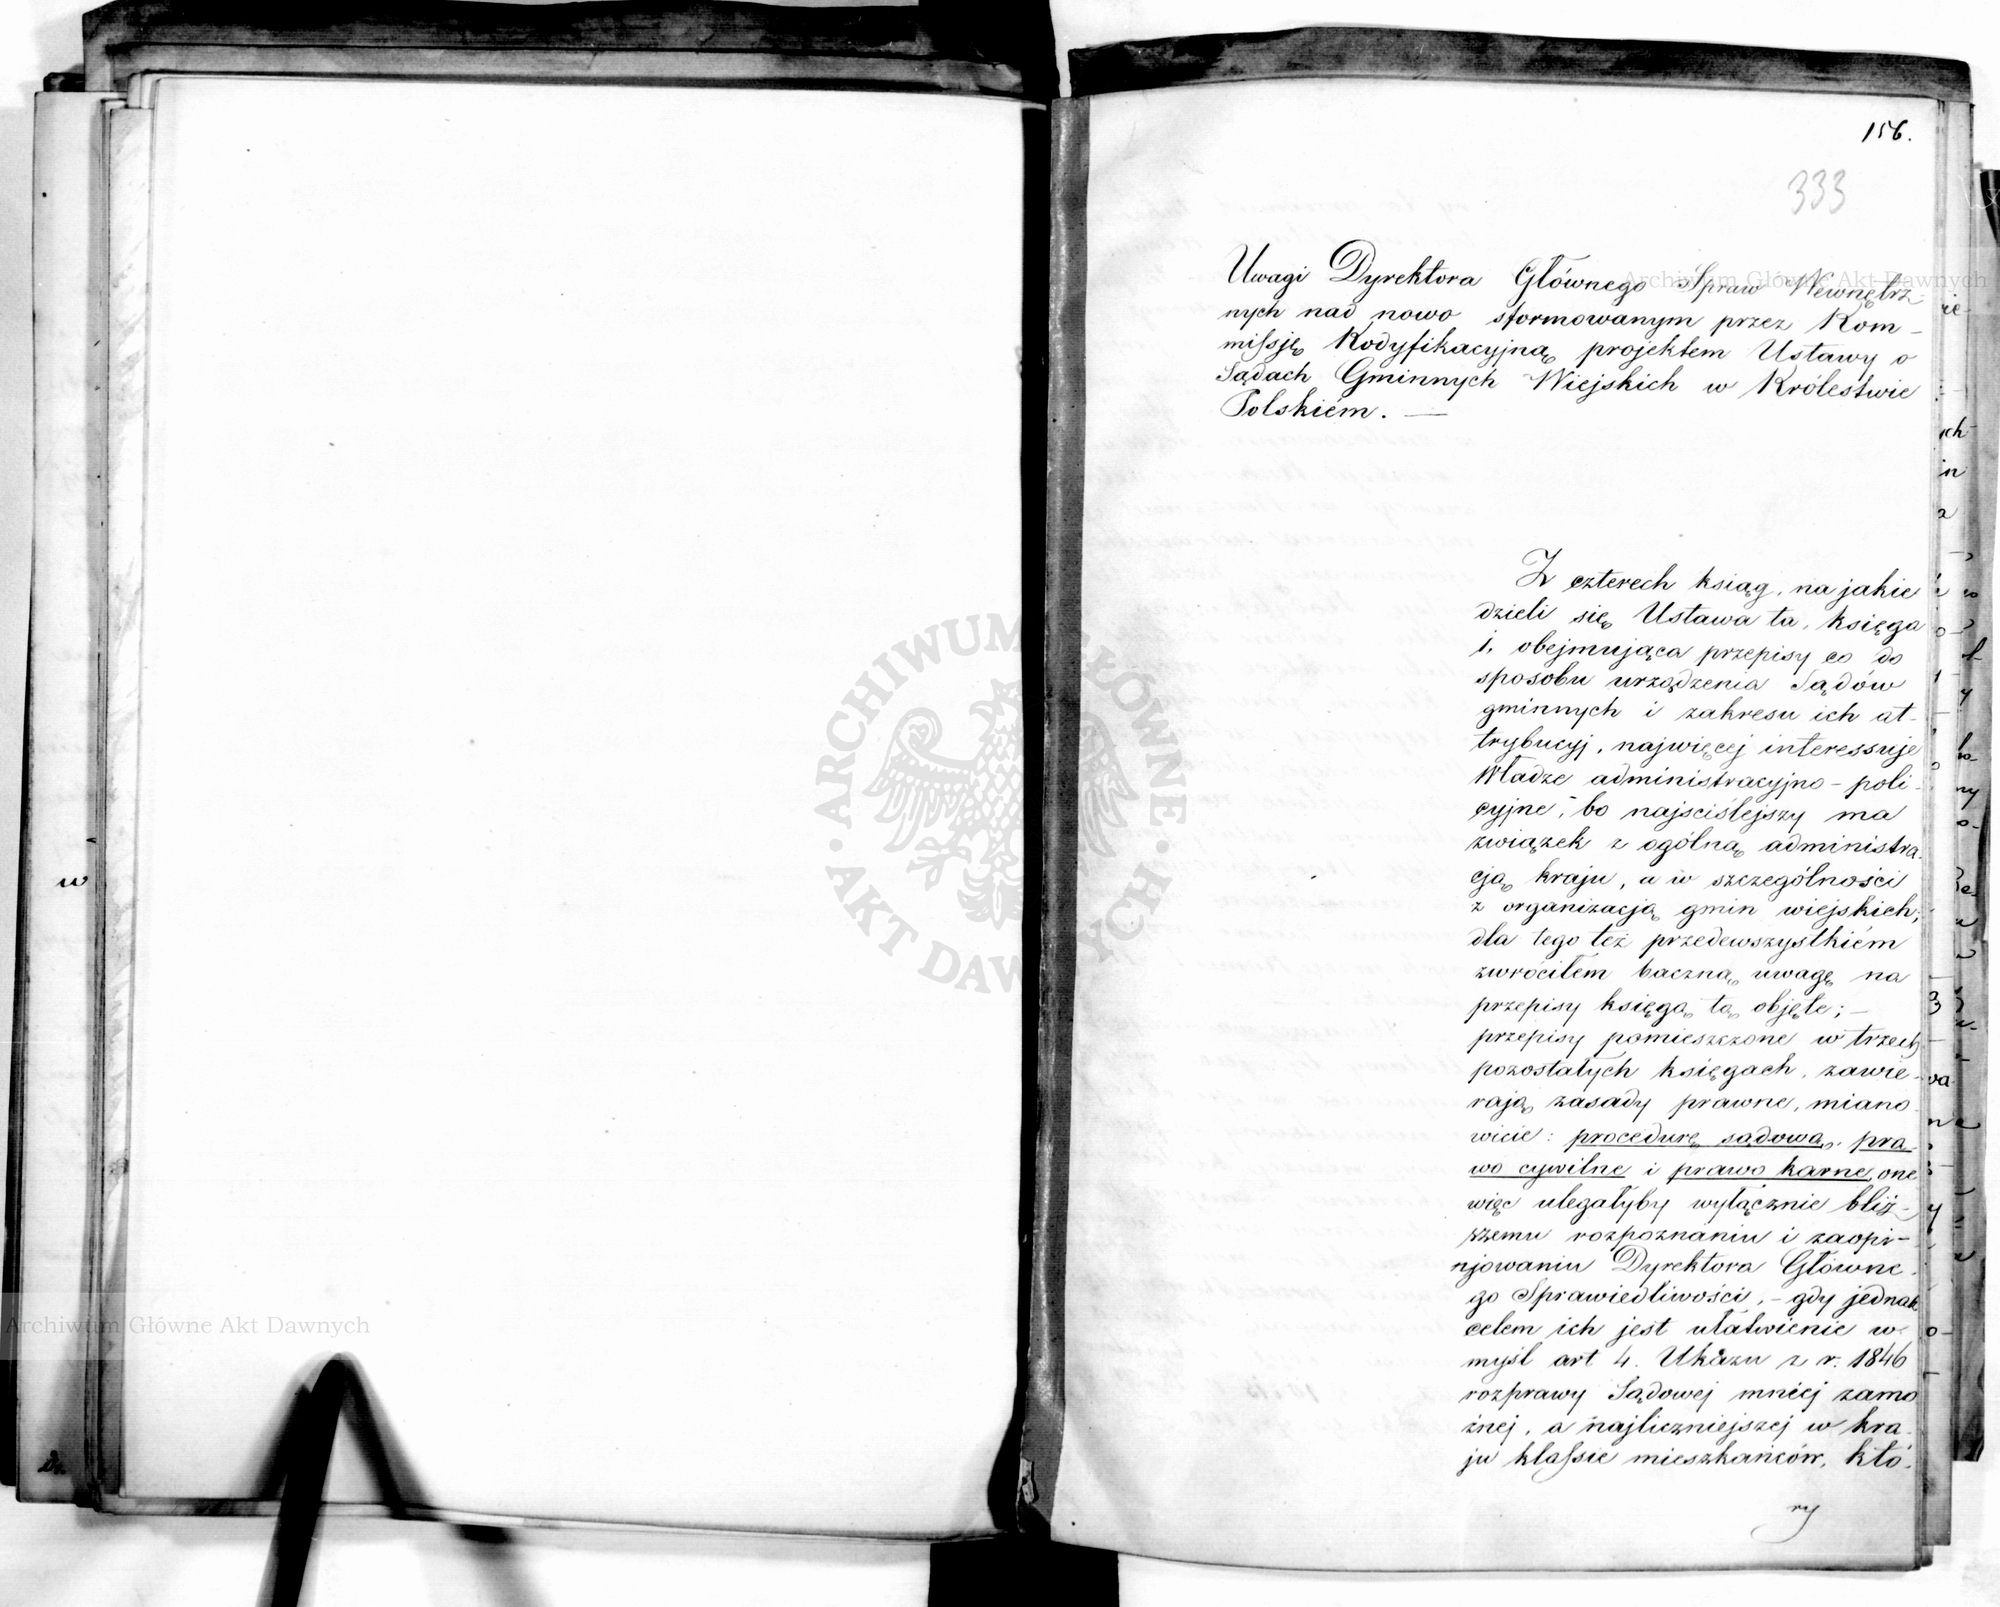 156.
333
Uwagi Dyrektora Głównego Spraw Wewnętrz-
nych nad nowo sformowanym przez Kom-
missję Kodyfikacyjną projektem Ustawy o
Sądach Gminnych Wiejskich w Królestwie
Polskiém. —
Z czterech ksiąg, na jakie
dzieli się Ustawa ta, księga
i. obejmująca przepisy co do
sposobu urządzenia Sądów
gminnych i zakresu ich at-
trybucyj, najwięcej interessuje
Władze administracyjno-poli-
cyjne, bo najściślejszy ma
związek z ogólną administra-
cją kraju, a w szczególności
z organizacją gmin wiejskich;
dla tego też przedewszystkiém
zwróciłem baczną uwagę na
przepisy księgą tą objęte; —
przepisy pomieszczone w trzech
pozostałych księgach, zawie-
rają zasady prawne, miano-
wicie: procedurę sądową, pra-
wo cywilne i prawo karne, one
więc ulegałyby wyłącznie bliż-
szemu rozpoznaniu i zaopi-
njowaniu Dyrektora Główne-
go Sprawiedliwości, - gdy jednak
celem ich jest ułatwienie w
myśl art 4. Ukazu z r. 1846
rozprawy Sądowej mniéj zamo
żnej, a najliczniejszej w kra-
ju klassie mieszkańców, któ-
ry
Archiwum Główne Akt Dawnych
Archiwum Główne Akt Dawnych
ARCHIWUM GŁÓWNE · AKT DAWNYCH ·